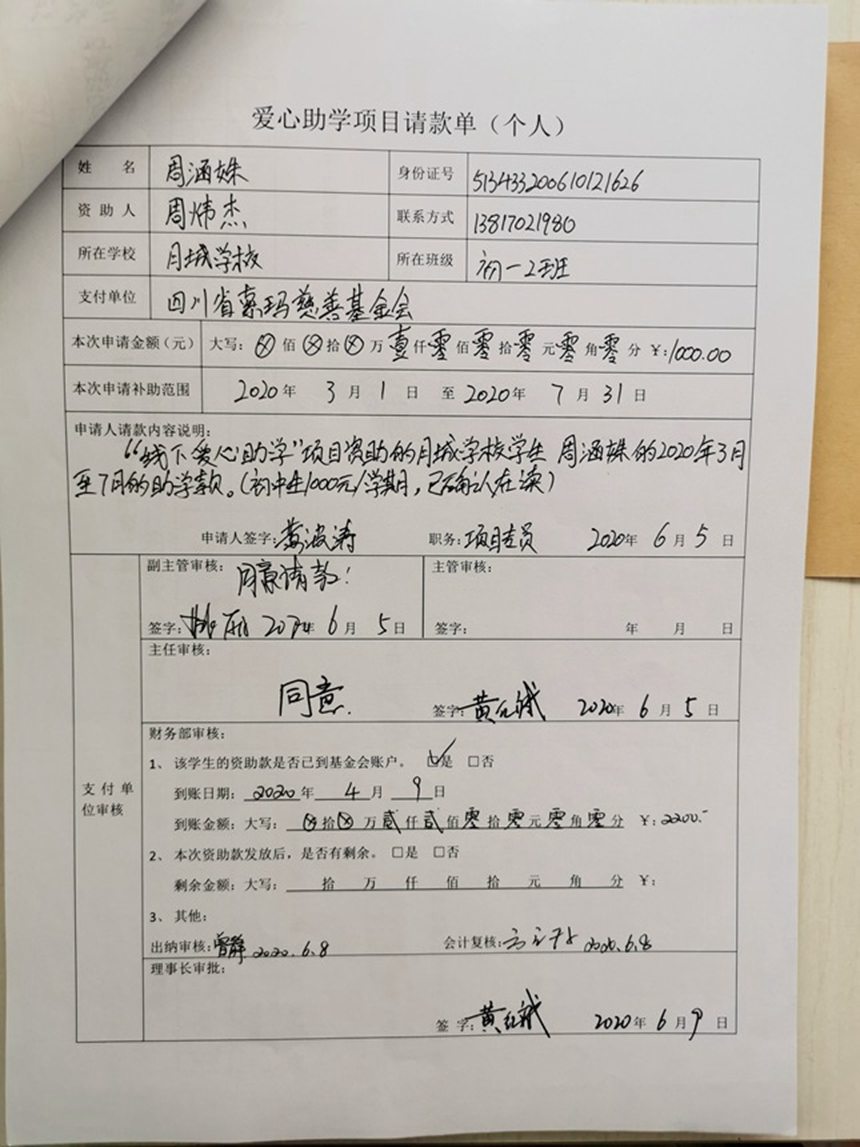 爱心助学项目请款单（个人）
姓 名 周涵姝 身份证号 513433200610121626
资 助 人 周炜杰 联系方式 13817021980
所在学校 月城学校 所在班级 初一2班
支付单位 四川省索玛慈善基金会
本次申请金额（元） 大写：ⓧ佰ⓧ拾ⓧ万壹仟零佰零拾零元零角零分 ￥：1000.00
本次申请补助范围 2020年 3月 1日 至 2020年 7月 31日
申请人请款内容说明：
“线下爱心助学”项目资助的月城学校学生 周涵姝的2020年3月
至7月的助学款。（初中生1000元/学期，已确认在读）
申请人签字： 职务：项目专员 2020年 6月 5日
支付单位审核
副主管审核： 主管审核：
同意请款！
签字： 2020年 6月 5日 签字： 年 月 日
主任审核：
同意.
签字： 2020年 6月 5日
财务部审核：
1、 该学生的资助款是否已到基金会账户。 ☑是 □否
到账日期：2020年 4月 9日
到账金额：大写： ⓧ拾ⓧ万贰仟贰佰零拾零元零角零分 ￥：2200.-
2、 本次资助款发放后，是否有剩余。 □是 □否
剩余金额：大写： 拾 万 仟 佰 拾 元 角 分 ￥：
3、 其他：
出纳审核：曾静 2020.6.8 会计复核： 2020.6.8
理事长审批：
签 字： 2020年 6月 9日